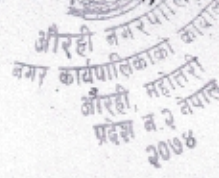 औरही नगरपालि
नगर कार्यपालिकाको कार्या
औरही, महोत्तरी
प्रदेश न.२ नेपाल
२०७४